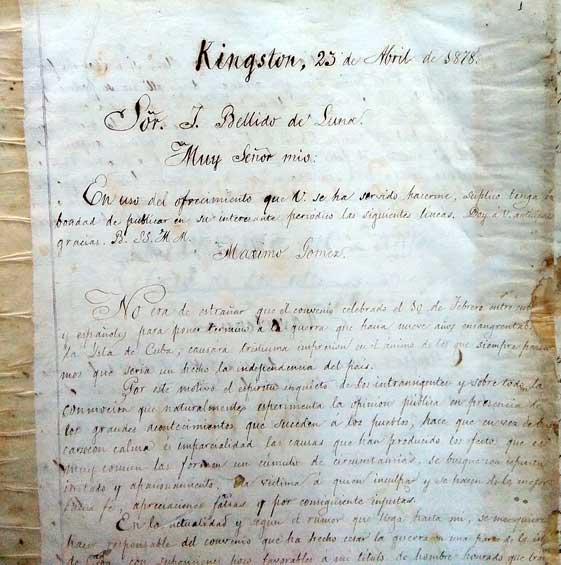 Kingston, 23 de Abril de 1878.
Sõr. J. Bellido de Luna.
Muy Señor mio:
En uso del ofrecimiento que V. se ha servido hacerme, suplico tenga la
bondad de publicar en su interesante periodico las siguientes lineas. Doy a V. anticipadas
gracias. B. SS. M. M.
Maximo Gomez.
No era de estrañar que el convenio celebrado el de Febrero entre cub
y españoles para poner termino a la guerra que hacia nueve años ensangrentaba
la Isla de Cuba, causara tristisima impresion en el animo de los que siempre pensa
mos que seria un hecho la independencia del pais.
Por este motivo el espiritu inquieto de los intransigentes y sobre todo, la
conmocion que naturalmente esperimenta la opinion publica en presencia de
los grandes acontecimientos que suceden a los pueblos, hace que en vez de bus
car con calma é imparcialidad las causas que han producido los efectos, que es
muy comun las forman un cumulo de circunstancias, se busque con espiritu
irritado y apasionamiento, la victima á quien inculpar y se hacen de la mejor
buena fé, apreciaciones falsas y por consiguiente injustas.
En la actualidad y segun el rumor que llega hasta mi, se me quiere
hacer responsable del convenio que ha hecho cesar la guerra en una parte de la
con suposiciones poco favorables a mi titulo de hombre honrado que